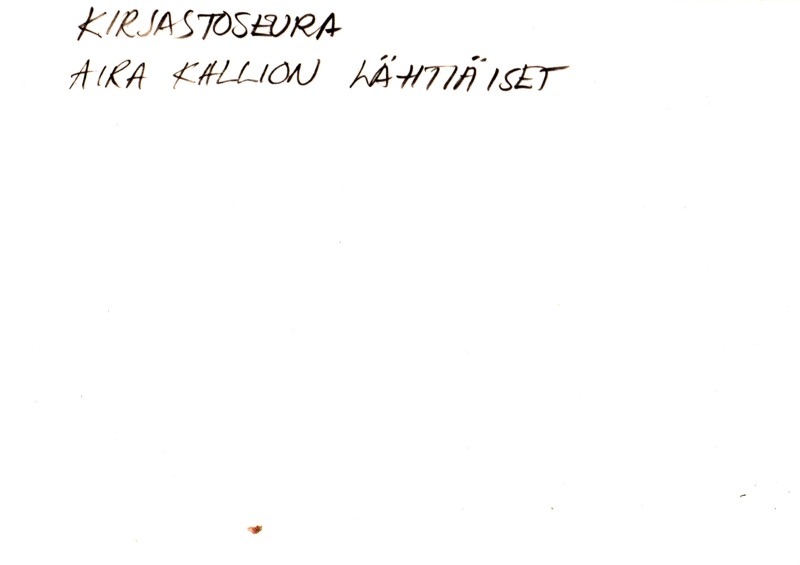 KIRJASTOSEURA
AIRA KALLION LÄHTIÄISET